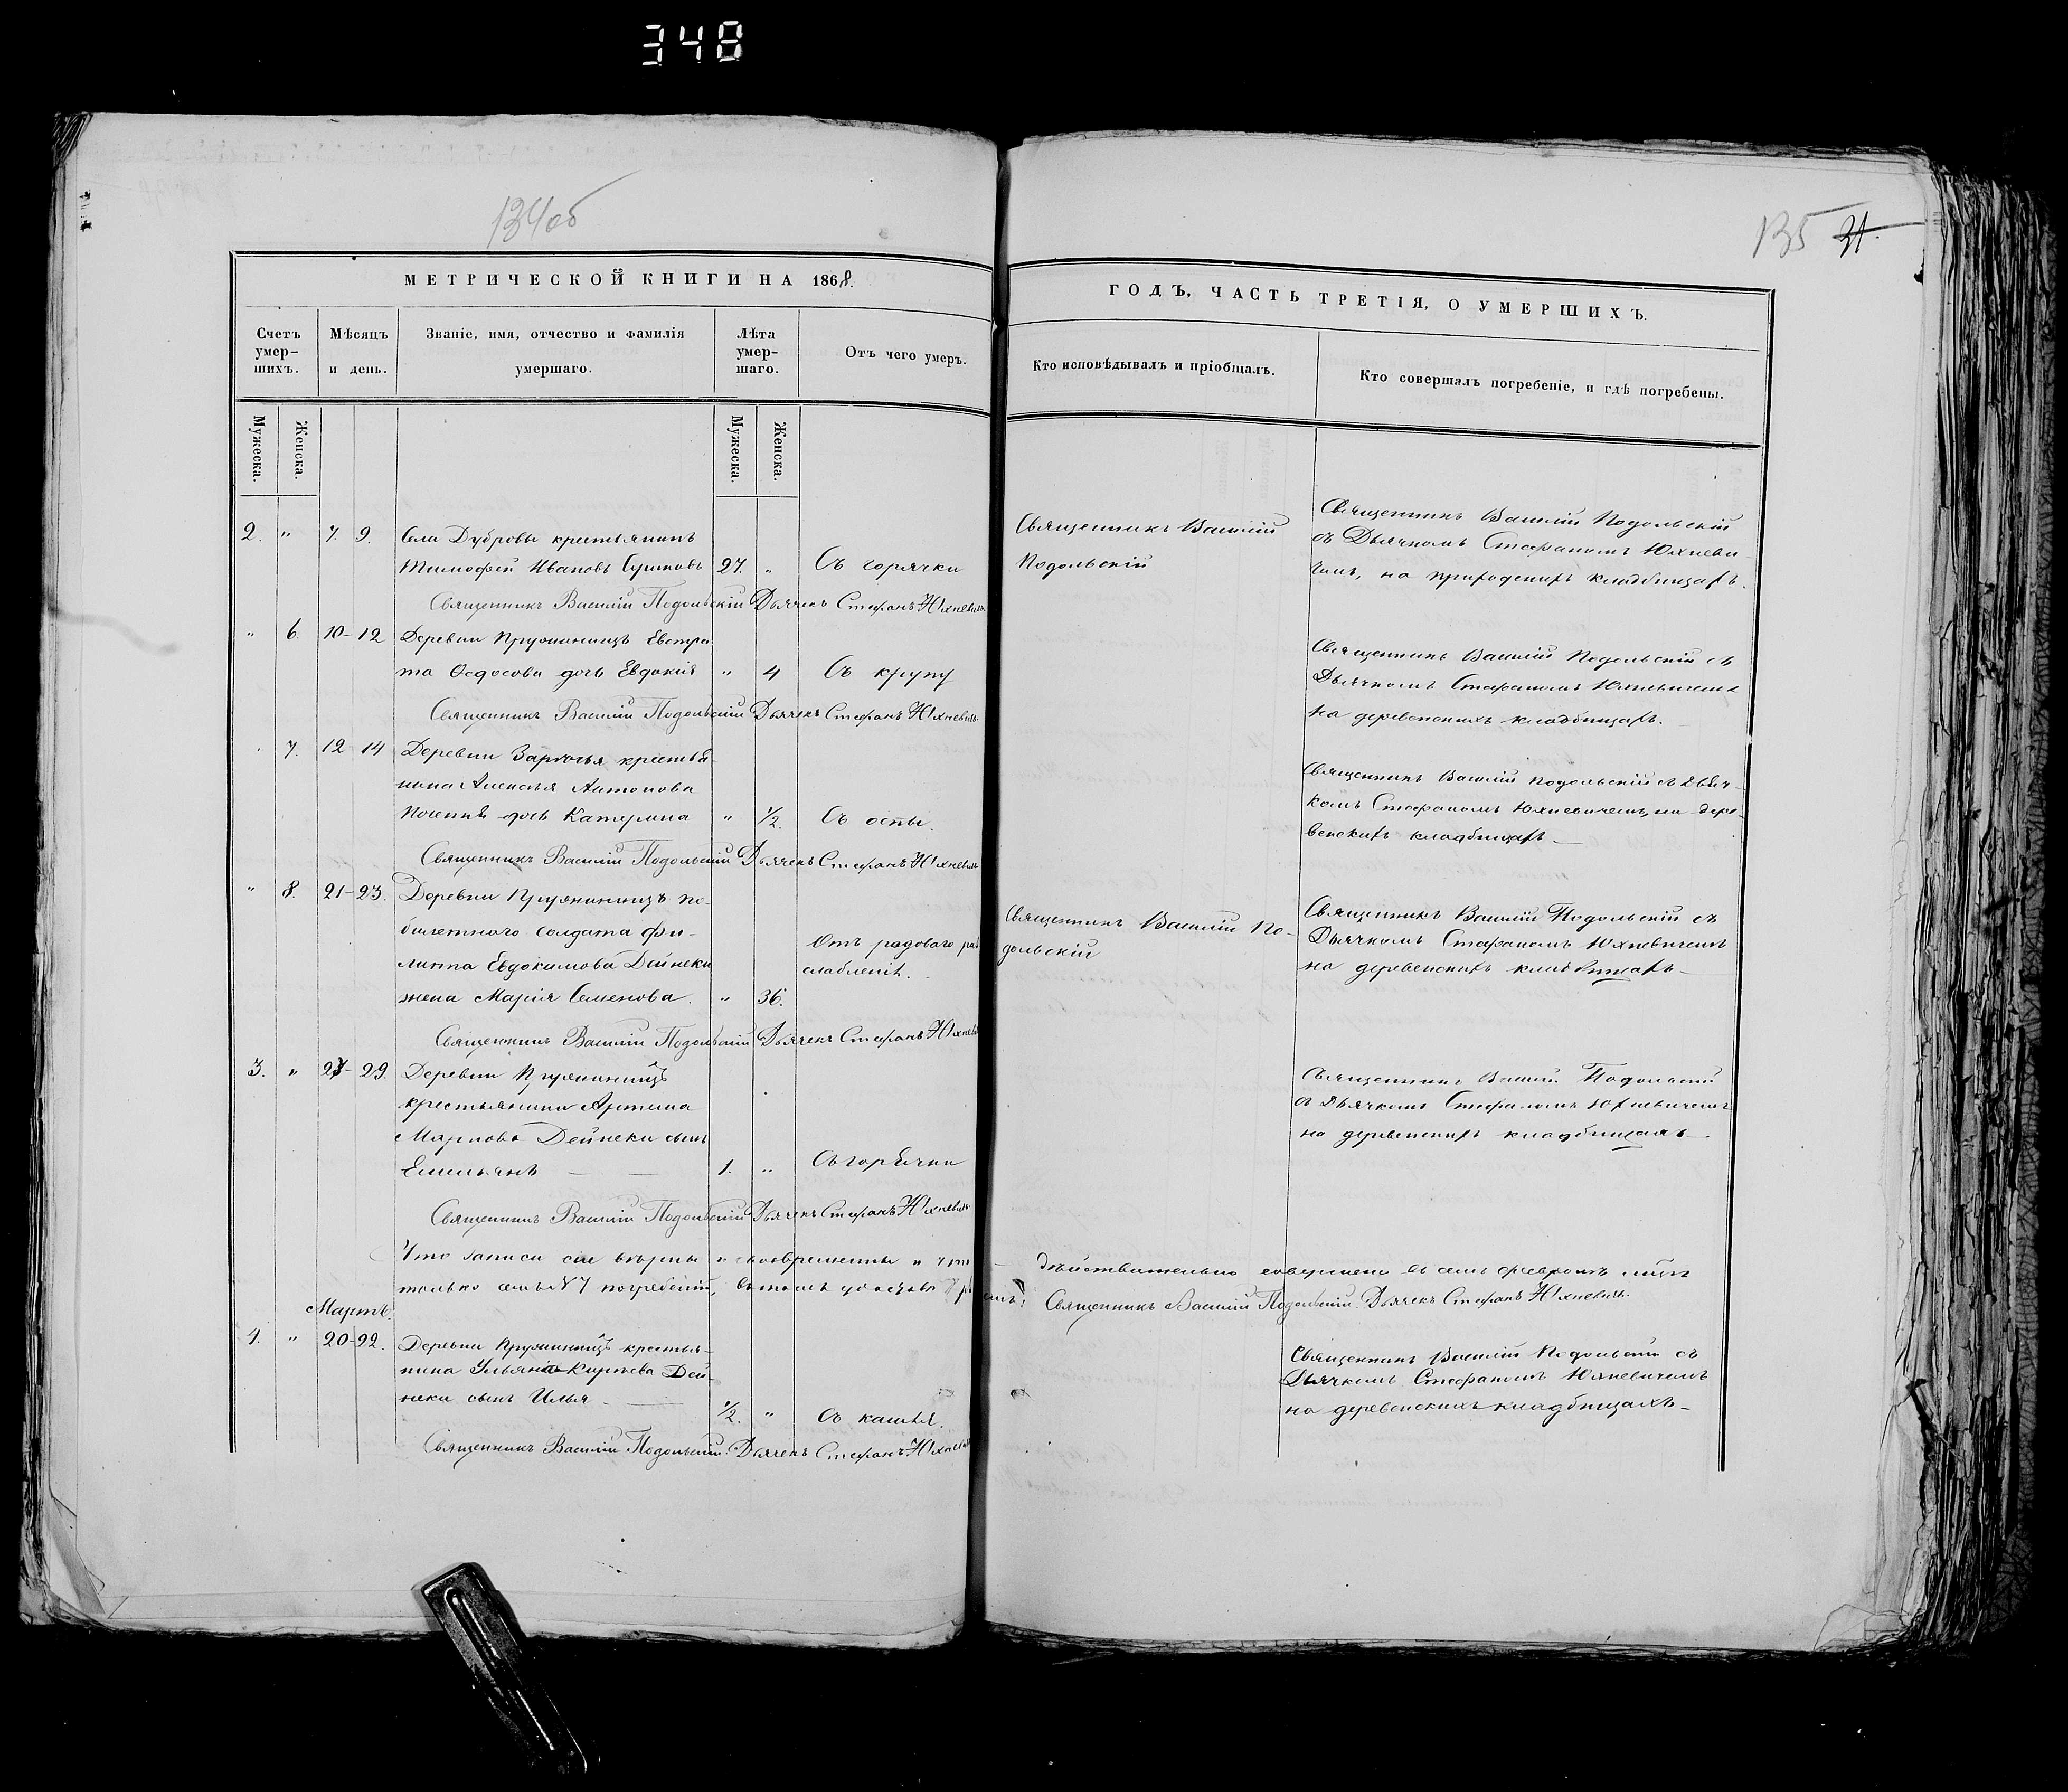 348
134об
МЕТРИЧЕСКОЙ КНИГИ НА 1868.
Счетъ умер-шихъ.
Мѣсяцъ и день.
Званіе, имя, отчество и фамилія умершаго.
Лѣта умер-шаго.
Отъ чего умеръ.
Мужеска.
Женска.
Мужеска.
Женска.
2. " 7. 9. Села Дубровы крестьянинъ
Тимофей Ивановъ 27. " Съ горячки
Священникъ Василій Подольскій Дьячекъ Стефанъ Юхневичъ
" 6. 10-12 Деревни Пружининъ Евстра-
та Ѳедосова дочь Евдокія " 4 Съ крупу
Священникъ Василій Подольскій Дьячекъ Стефанъ Юхневичъ
7. 12 14 Деревни крестья-
нина Алексѣя Антонова
дочь Катерина " 1/2. Съ оспы.
Священникъ Василій Подольскій Дьячекъ Стефанъ Юхневичъ
" 8. 21-23. Деревни
билетного солдата Фи-
липпа Евдокимова Дейнеки
жена Марія Семенова. " 36.
Отъ родоваго раз
слабленія.
Священникъ Василій Подольскій Дьячекъ Стефанъ Юхневичъ
3. " 27- 29. Деревни
крестьянина
Маркова Дейнеки сынъ
Емельянъ 1. " Съ горячки
Священникъ Василій Подольскій Дьячекъ Стефанъ Юхневичъ
Что записи сіи вѣрны и своевременны и что
только семь N 7 погребеній, въ томъ
Мартъ.
4. " 20-22. Деревни крестья-
нина Ульяна Дей-
неки сынъ Илья 1/2. " Съ кашля.
Священникъ Василій Подольскій. Дьячекъ Стефанъ Юхневичъ
135 31.
ГОДЪ, ЧАСТЬ ТРЕТІЯ, О УМЕРШИХЪ.
Кто исповѣдывалъ и пріобщалъ.
Кто совершалъ погребеніе, и гдѣ погребены.
Священникъ Василій
Подольскій
Священникъ Василій Подольскій
съ Дьячкомъ Стефаномъ Юхневи
чемъ, на приходскихъ кладбищахъ.
Священникъ Василій Подольскій съ
Дьячкомъ Стефаномъ Юхневичемъ
на деревенскихъ кладбищахъ.
Священникъ Василій Подольскій съ Дьяч-
комъ Стефаномъ Юхневичемъ, на дере-
венскихъ кладбищахъ
Священникъ Василій По-
дольскій
Священникъ Василій Подольскій съ
Дьячкомъ Стефаномъ Юхневичемъ
на деревенскихъ кладбищахъ
Священникъ Василій Подольскій
съ Дьячкомъ Стефаномъ Юхневичемъ
на деревенскихъ кладбищахъ.
дѣйствительно совершено въ семъ февралѣ мѣсяцѣ
Священникъ Василій Подольскій. Дьячекъ Стефанъ Юхневичъ.
Священникъ Василій Подольскій съ
Дьячкомъ Стефаномъ Юхневичемъ
на деревенскихъ кладбищахъ